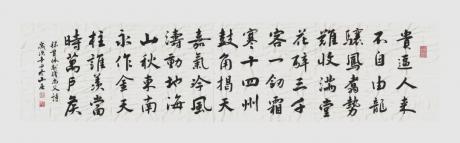 貴逼人来
不自由龍
驤鳳翥勢
難收滿堂
花醉三千
客一劒霜
寒十四州
鼓角揭天
嘉氣冷風
濤動地海
山秋東南
永作金天
柱誰羨當
時萬户矦
貫休獻錢尚父詩